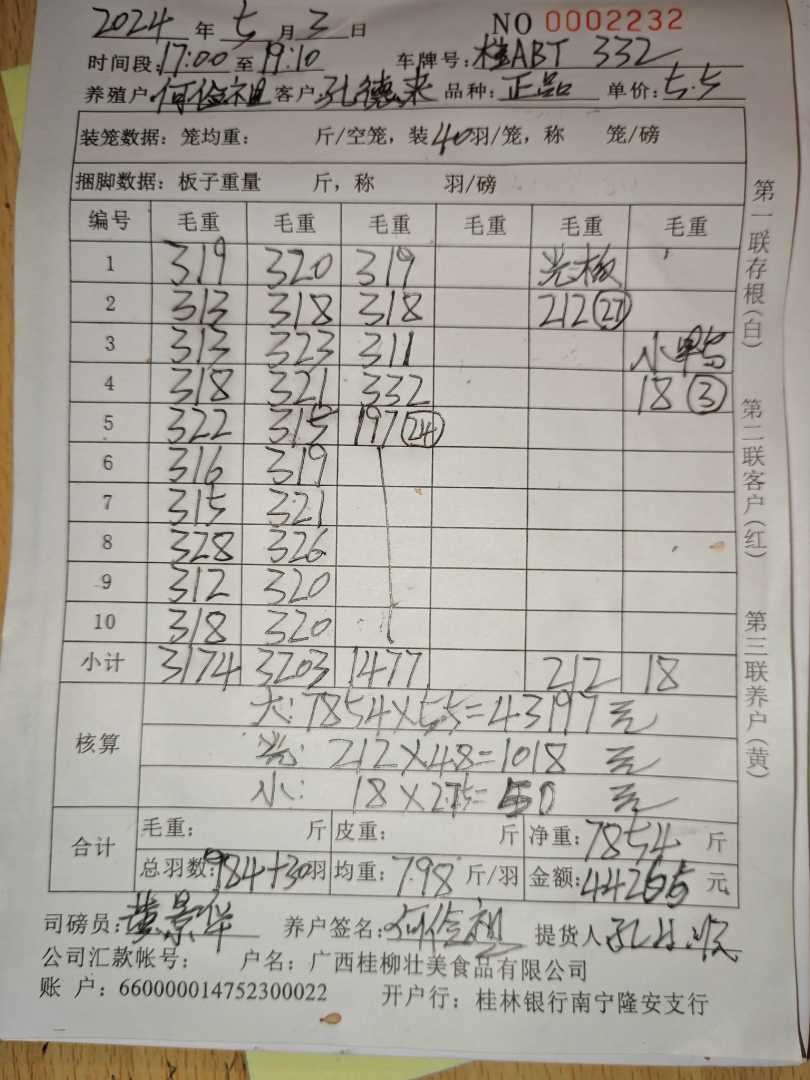 2024 年 七 月 3 日 NO 0002232
时间段:17:00 至 19:10 车牌号: 桂ABT 332
养殖户 何俭祖 客户 孔德来 品种: 正品 单价: 5.5
装笼数据: 笼均重: 斤/空笼, 装 40 羽/笼, 称 笼/磅
捆脚数据: 板子重量 斤, 称 羽/磅
编号 毛重 毛重 毛重 毛重 毛重 毛重
1 319 320 319 光板
2 313 318 318 212 (27)
3 313 323 311 小鸭
4 318 321 332 18 (3)
5 322 315 197 (24)
6 316 319
7 315 321
8 328 326
9 312 320
10 318 320
小计 3174 3203 1477 212 18
核算
大: 7854×5.5=43197 元
光: 212×4.8=1018 元
小: 18×2.75=50 元
合计
毛重: 斤 皮重: 斤 净重: 7854 斤
总羽数: 984+30 羽 均重: 7.98 斤/羽 金额: 44265 元
司磅员: 黄景华 养户签名: 何俭祖 提货人
公司汇款帐号: 户名: 广西桂柳壮美食品有限公司
账 户: 660000014752300022 开户行: 桂林银行南宁隆安支行
第一联存根(白)
第二联客户(红)
第三联养户(黄)